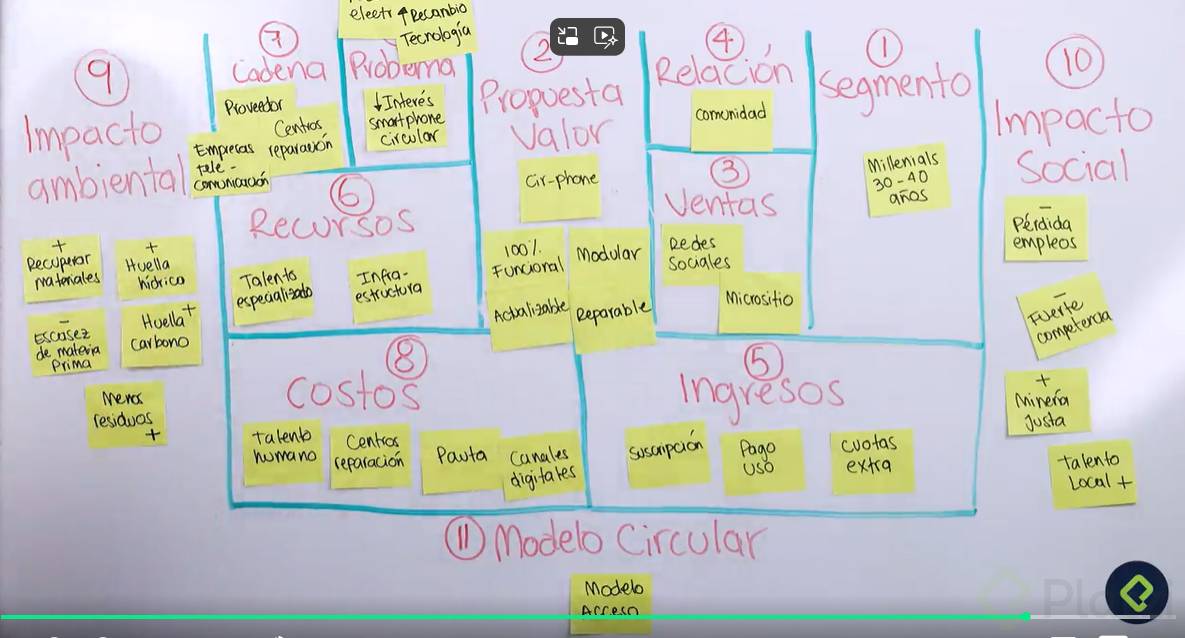 9
Impacto
ambiental
+
Recuperar
materiales
+
Huella
hídrica
-
Escasez
de materia
prima
Huella +
Carbono
Menos
residuos
+
7
Cadena
Proveedor
Centros
reparación
Empresas
tele-
comunicación
electr
↑Recambio
Tecnología
Problema
↓Interés
smartphone
circular
6
Recursos
Talento
especializado
Infra-
estructura
2
Propuesta
Valor
Cir-phone
100%
Funcional
Modular
Actualizable
Reparable
4
Relación
comunidad
3
Ventas
Redes
Sociales
Micrositio
1
Segmento
Millenials
30-40
años
10
Impacto
Social
-
Pérdida
empleos
-
Fuerte
competencia
+
Minería
Justa
Talento
Local +
8
Costos
Talento
humano
Centros
reparación
Pauta
Canales
digitales
5
Ingresos
Suscripción
Pago
uso
cuotas
extra
11 Modelo Circular
Modelo
Acceso